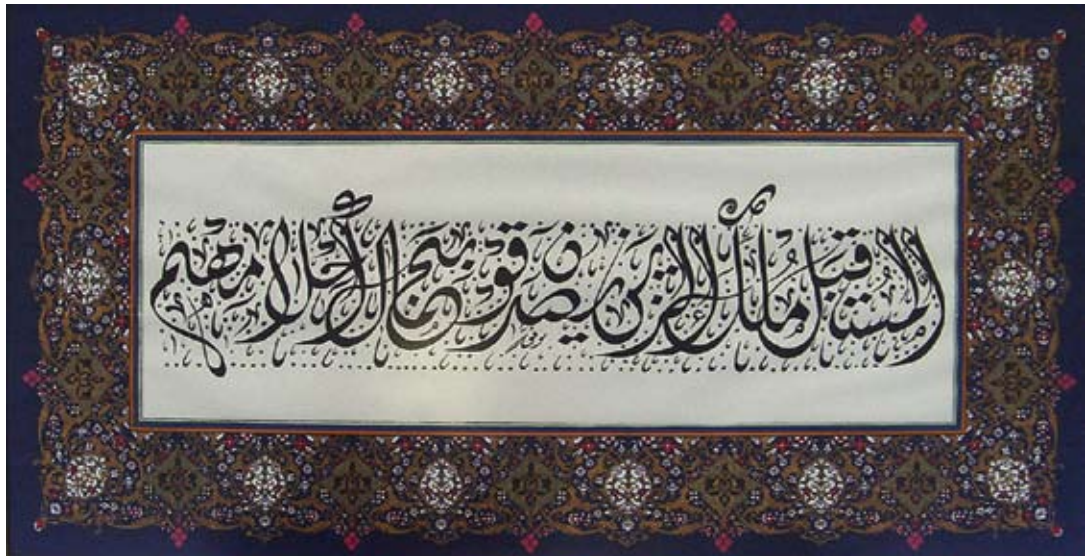 المستقبل الذين يصدقون بجمال أحلامهم